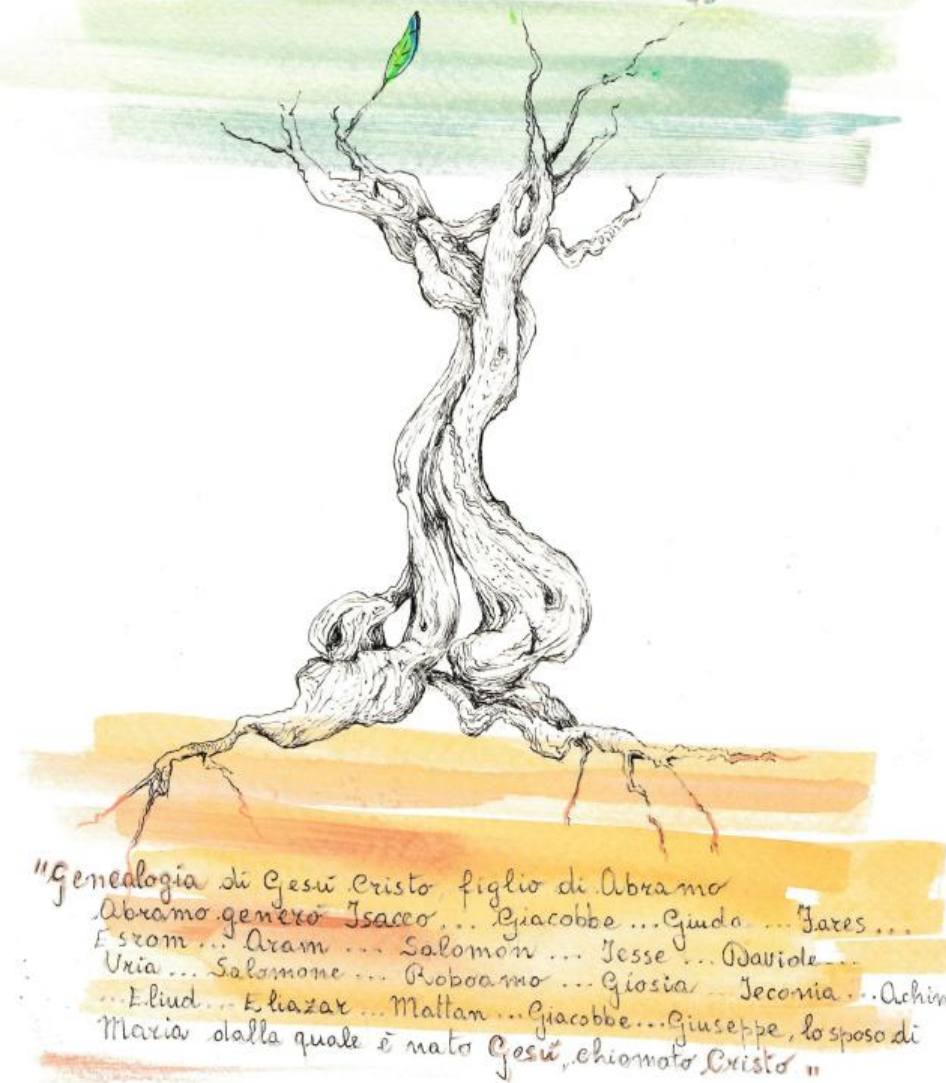 "Genealogia di Gesù Cristo, figlio di Abramo
Abramo generò Isacco... Giacobbe... Giuda... Fares...
Esrom... Aram... Salomon... Iesse... Davide...
Uria... Salomone... Roboamo... Giosia... Ieconia... Achim
...Eliud... Eliazar... Mattan... Giacobbe... Giuseppe, lo sposo di
Maria dalla quale è nato Gesù, chiamato Cristo"